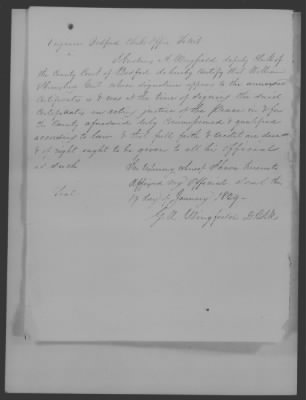 Virginia Bedford Clerks Office To Wit
I Gustavus A Wingfield deputy Clerk of
the County Court of Bedford do hereby Certify that William
Gent whose signature appears to the annexed
Certificate is & was at the time of signing the said
Certificate an acting justice of the peace in & for
the County aforesaid duly Commissioned & qualified
according to law & that full faith & credit are due
& of right ought to be given to all his Official acts
as such
In testimony whereof I have hereunto
Affixed my Official Seal this
Seal
19 day of January 1829
G A Wingfield D Clk